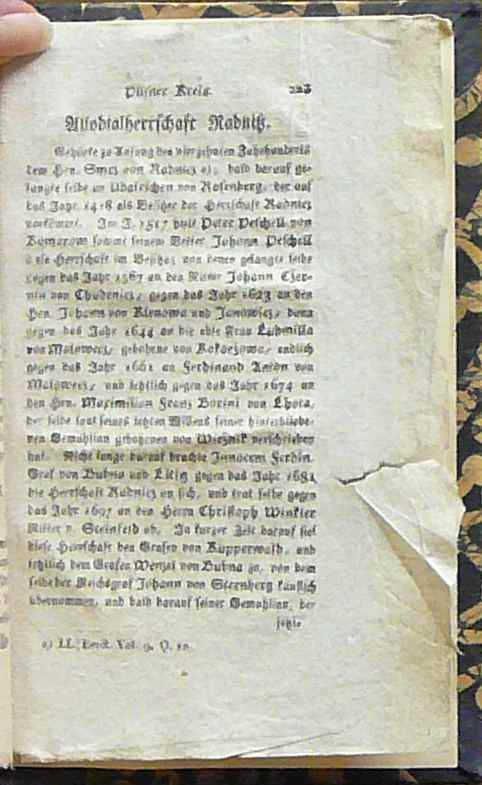 Pilsner Kreis. 223
Allodialherrschaft Radnitz.
Gehörte zu Anfang des vierzehnten Jahrhunderts
dem Hrn. Smrz von Radnicz a); bald darauf ge-
langte selbe an Udalrichen von Rosenberg, der auf
das Jahr 1418 als Besitzer der Herrschaft Radnicz
vorkömmt. Im J. 1517 hielt Peter Peschell von
Komarow sammt seinem Vetter Johann Peschell
diese Herrschaft im Besitze, von denen gelangte selbe
gegen das Jahr 1567 an den Ritter Johann Czer-
nin von Chudenicz, gegen das Jahr 1623 an den
Hrn. Johann von Klenowa und Janowicz, denn
gegen das Jahr 1644 an die edle Frau Ludmilla
von Malowecz, gebohrne von Kokorzowa, endlich
gegen das Jahr 1661 an Ferdinand Anton von
Malowecz, und letztlich gegen das Jahr 1674 an
den Hrn. Maximilian Franz Borini von Lhota,
der selbe laut seines letzten Willens seiner hinterbliebe-
nen Gemahlinn gebohrnen von Wieznik verschrieben
hat. Nicht lange darauf brachte Innocenz Ferdin.
Graf von Bubna und Littitz gegen das Jahr 1681
die Herrschaft Radnicz an sich, und trat selbe gegen
das Jahr 1697 an den Herrn Christoph Winkler
Ritter v. Steinfeld ab. In kurzer Zeit darauf fiel
diese Herrschaft den Grafen von Kupperwald, und
letztlich dem Grafen Wenzel von Bubna zu, von dem
selbe der Reichsgraf Johann von Sternberg käuflich
übernommen, und bald darauf seiner Gemahlinn, der
jetzto
a) LL. Erect. Vol. 9. Q. 10.